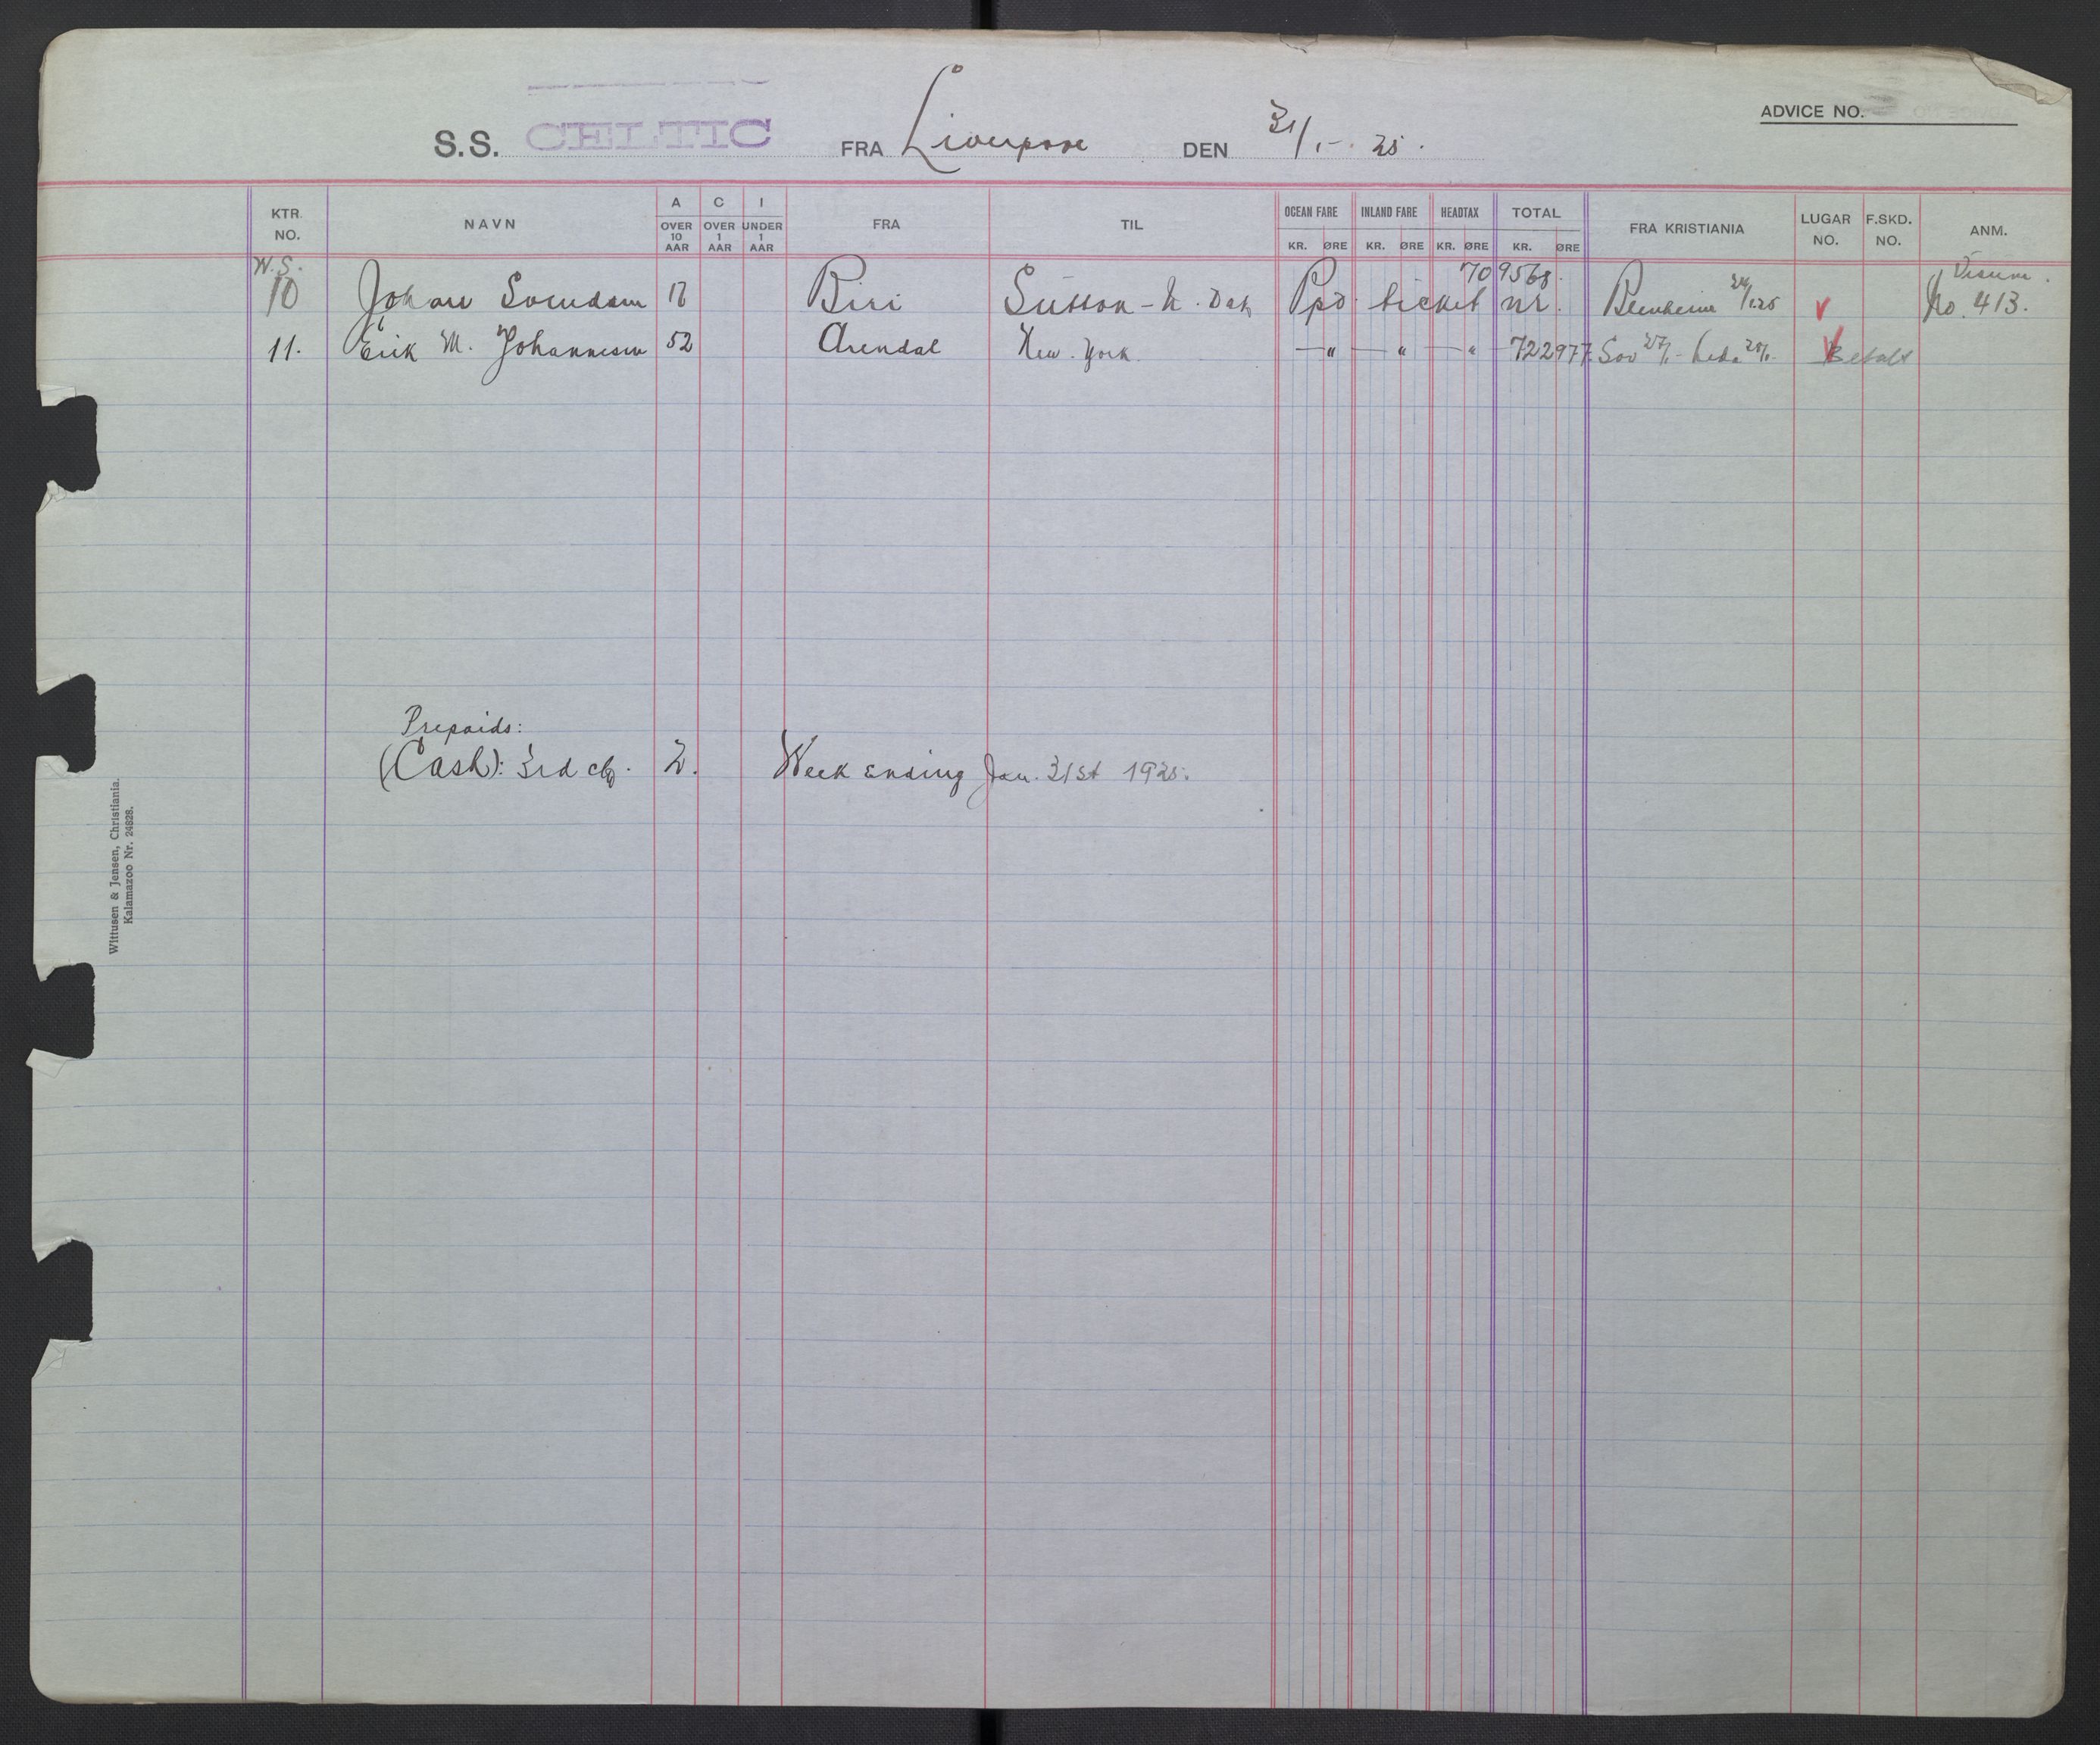 S.S. CELTIC FRA Liverpool DEN 31/1-25. ADVICE NO.
KTR. NO. NAVN A OVER 10 AAR C OVER 1 AAR I UNDER 1 AAR FRA TIL OCEAN FARE KR. ØRE INLAND FARE KR. ØRE HEADTAX KR. ØRE TOTAL KR. ØRE FRA KRISTIANIA LUGAR NO. F.SKD. NO. ANM.
W.S. 709568. Visum.
10 Johan Svendsen Biri Sutton - N. Dak Ppd ticket nr. Blenheim 24/1.25 No. 413.
11. Erik M. Johannesen 52 Arendal New. York — " — " — " — 722977. 27/1 - 28/1. Betalt
Prepaids:
(Cash): 3rd cl. 2. Week ending Jan. 31st 1925.
Wittusen & Jensen, Christiania.
Kalamazoo Nr. 24828.